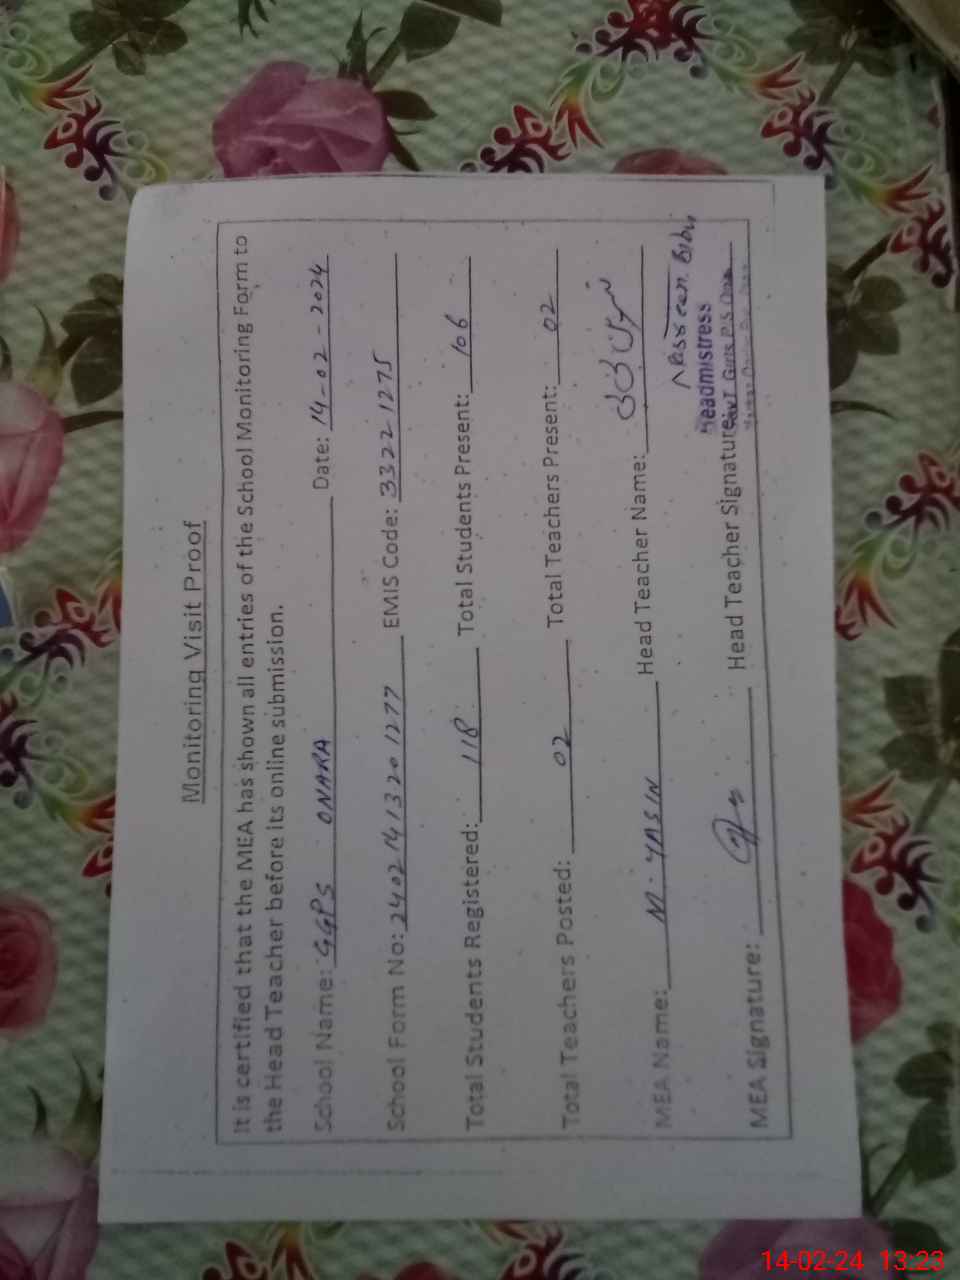 Monitoring Visit Proof
It is certified that the MEA has shown all entries of the School Monitoring Form to
the Head Teacher before its online submission.
School Name: GGPS ONARA Date: 14-02-2024
School Form No: 24021413201277 EMIS Code: 33221275
Total Students Registered: 118 Total Students Present: 106
Total Teachers Posted: 02 Total Teachers Present: 02
MEA Name: M. YASIN Head Teacher Name:
Bibi
Headmistress
MEA Signature: Head Teacher Signature:
Govt Girls P.S
14-02-24 13:23